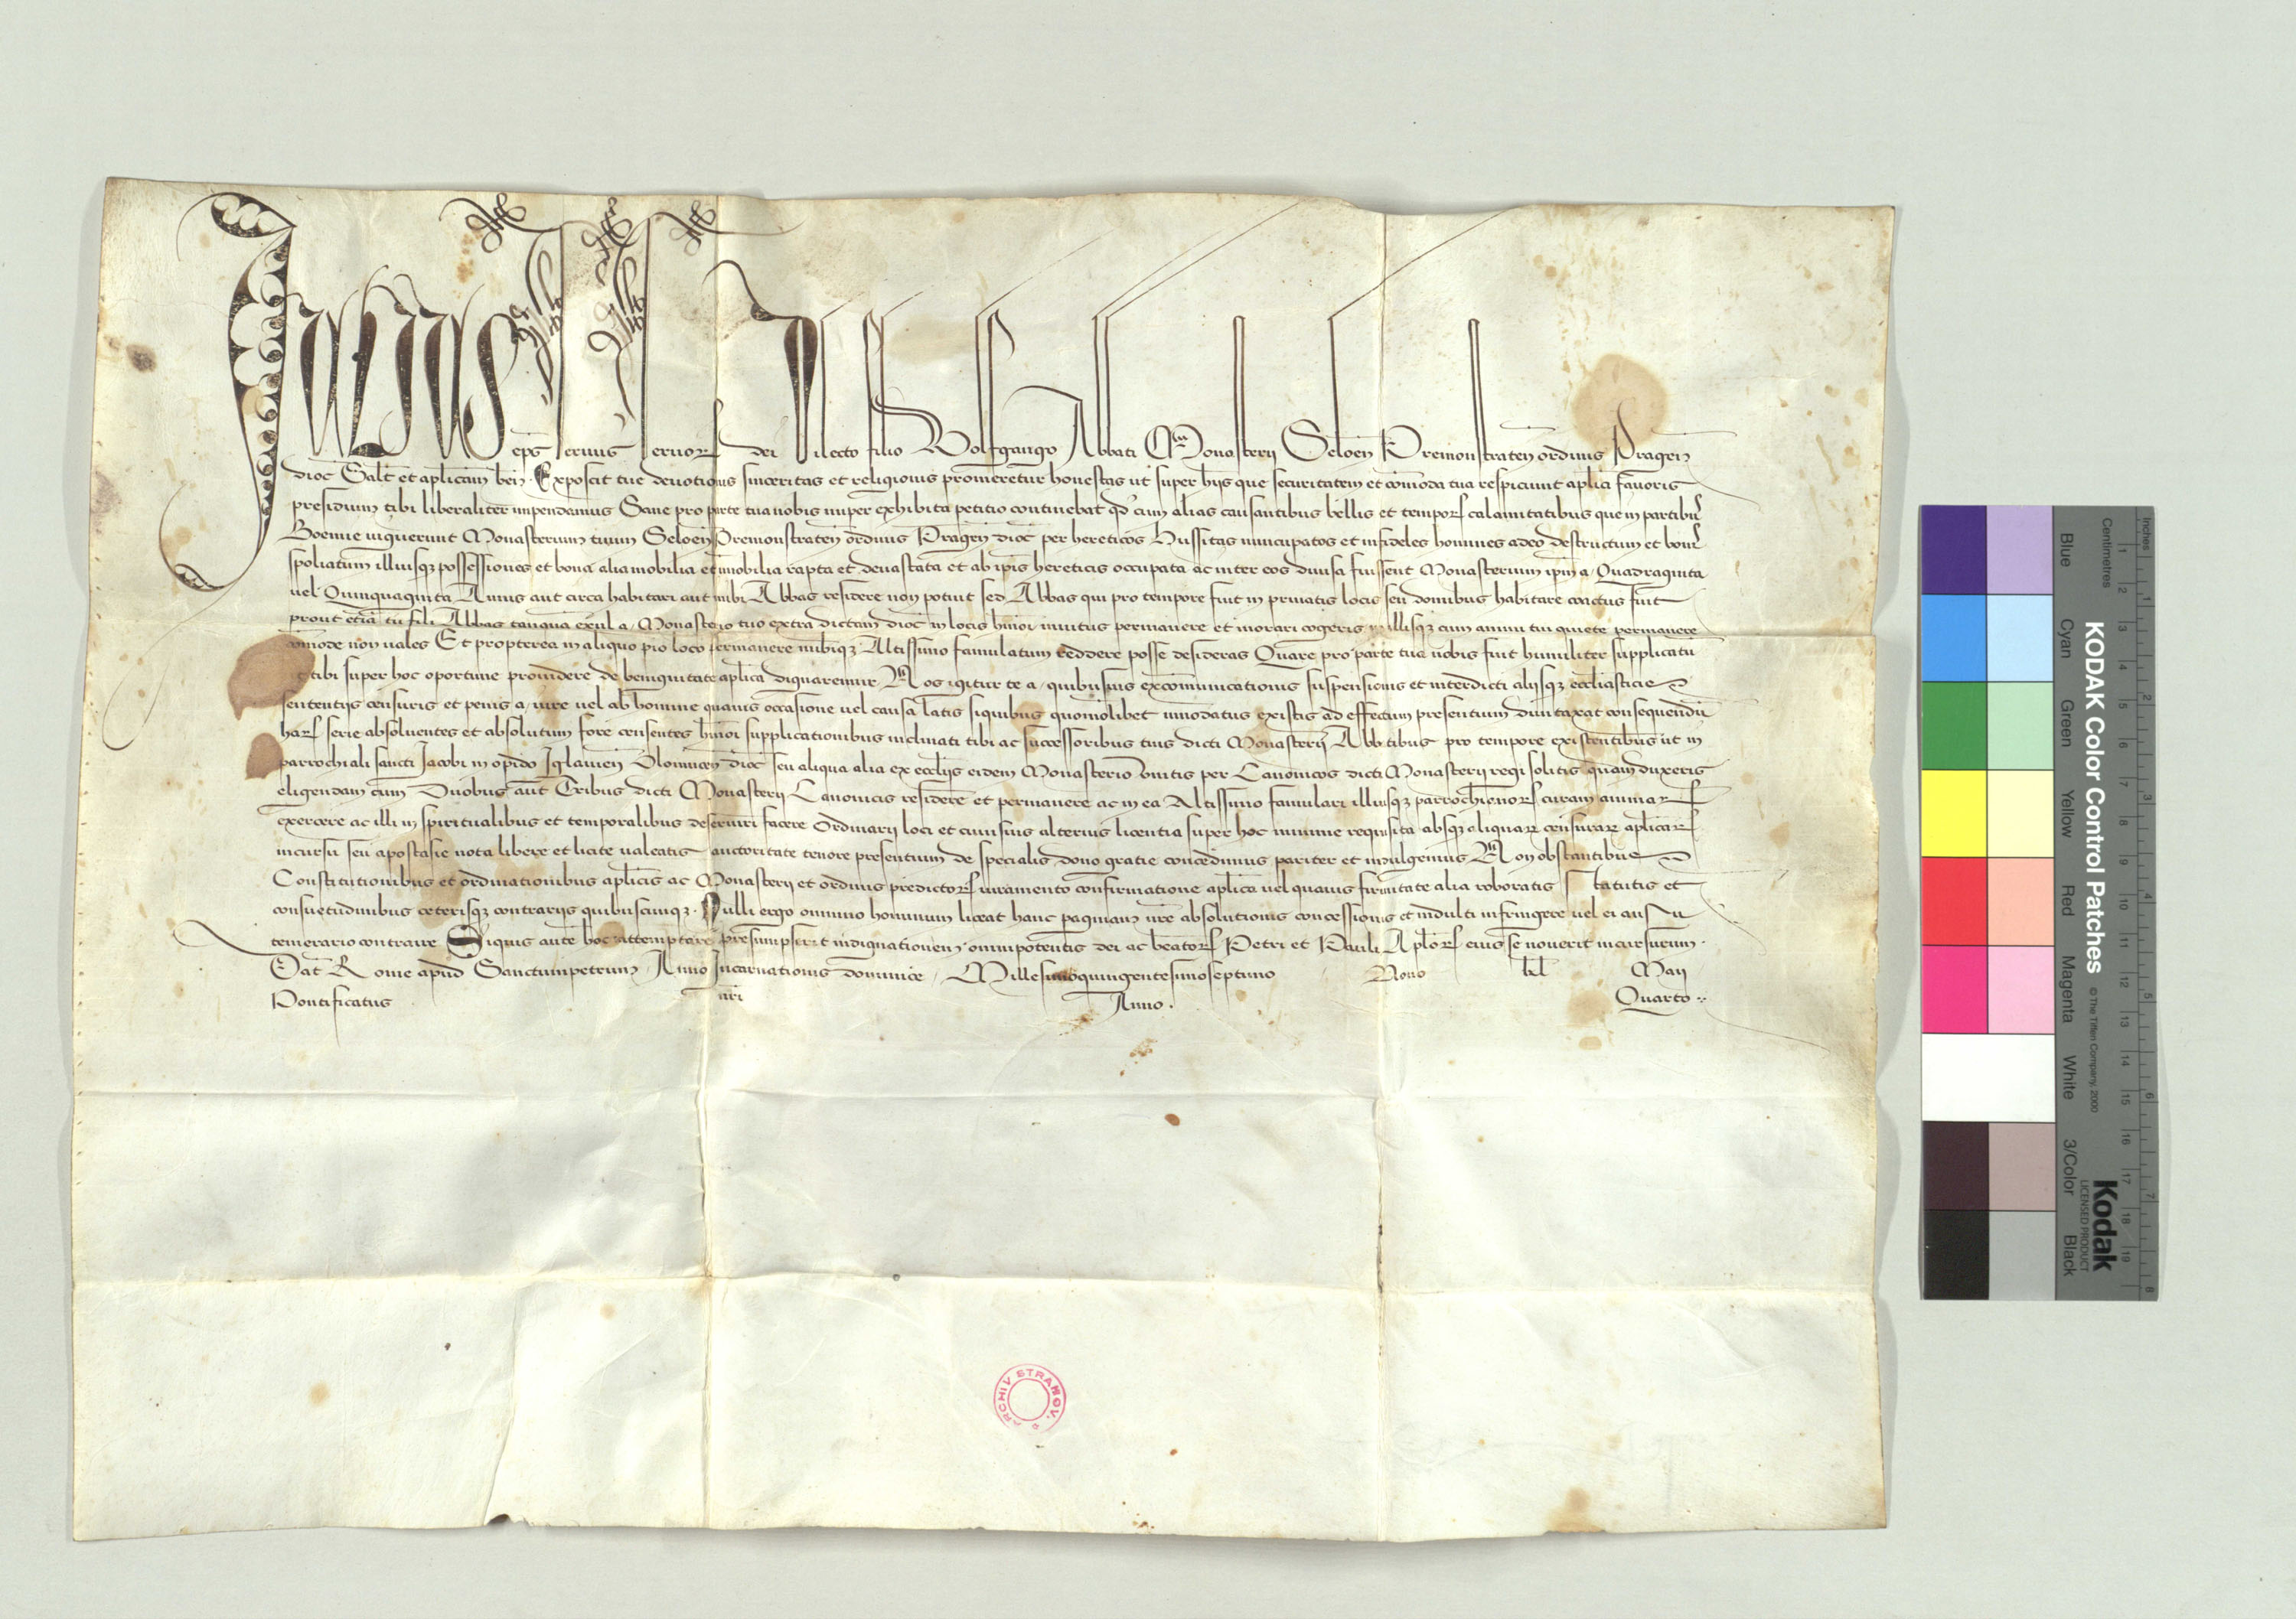 Julius eps seruus seruor dei Dilecto filio Wolfgango Abbati Monasterij Seloen Premonstraten ordinis Pragen
dioc Salt et aplicam ben. Exposcit tue deuotionis sinceritas et religionis promeretur honestas ut super hijs que securitatem et comoda tua respiciunt aplici fauoris
presidium tibi liberaliter impendamus Sane pro parte tua nobis nuper exhibita petitio continebat qd cum alias causantibus bellis et tempor calamitatibus que in partibus
Boemie uiguerunt Monasterium tuum Seloen Premonstraten ordinis Pragen dioc per hereticos Hussitas nuncupatos et infideles homines adeo destructum et bonis
spoliatum illiusqz possessiones et bona alia mobilia et immobilia rapta et deuastata et ab ipis hereticis occupata ac inter eos diuisa fuissent Monasterium ipm a Quadraginta
uel Quinquaginta Annis aut circa habitari aut inibi Abbas residere non potuit sed Abbas qui pro tempore fuit in priuatis locis seu domibus habitare coactus fuit
prout etia tu fili Abbas tanquam exul a Monasterio tuo extra dictam dioc in locis hmoi inuitus permanere et morari cogeris in illisqz cum animi tui quiete permanere
comode non uales Et propterea in aliquo pio loco permanere inibiqz Altissimo famulatum reddere posse desideras Quare pro parte tua nobis fuit humiliter supplicatu
ut tibi super hoc oportune prouidere de benignitate aplica dignaremur Nos igitur te a quibusuis excomunicationis suspensionis et interdicti alijsqz ecclesiasticis
sententijs censuris et penis a iure uel ab homine quauis occasione uel causa latis siquibus quomolibet innodatus existis ad effectum presentium duntaxat consequendu
har serie absoluentes et absolutum fore censentes hmoi supplicationibus inclinati tibi ac successoribus tuis dicti Monasterij Abbatibus pro tempore existentibus ut in
parrochiali sancti Jacobi in opido Iglauien Olomucen dioc seu aliqua alia ex ecclijs eidem Monasterio unitis per Canonicos dicti Monasterij regi solitis quam duxeris
eligendam cum Duobus aut Tribus dicti Monasterij Canonicis residere et permanere ac in ea Altissimo famulari illiusqz parrochianor curam animar
exercere ac illi in spiritualibus et temporalibus deseruiri facere Ordinarij loci et cuiusuis alterius licentia super hoc minime requisita absqz aliquar censurar aplicar
incursu seu apostasie nota libere et licite ualeatis auctoritate tenore presentium de specialis dono gratie concedimus pariter et indulgemus Non obstantibus
Constitutionibus et ordinationibus aplicis ac Monasterij et ordinis predictor iuramento confirmatione aplica uel quauis firmitate alia roboratis Statutis et
consuetudinibus ceterisqz contrarijs quibuscunqz. Nulli ergo omnino hominum liceat hanc paginam nre absolutionis concessionis et indulti infringere uel ei ausu
temerario contraire Siquis aute hoc attemptare presumpserit indignationem omnipotentis dei ac beator Petri et Pauli Aplor eius se nouerit incursurum.
Dat Rome apud Sanctumpetrum Anno Incarnationis dominice Millesimoquingentesimoseptimo Nono kl Maij
Pontificatus nri Anno. Quarto
ARCHIV STRAHOV.
KODAK Color Control Patches © The Tiffen Company, 2000
Kodak
LICENSED PRODUCT
Blue Cyan Green Yellow Red Magenta White 3/Color Black
Inches 1 2 3 4 5 6 7 8
Centimetres 1 2 3 4 5 6 7 8 9 10 11 12 13 14 15 16 17 18 19